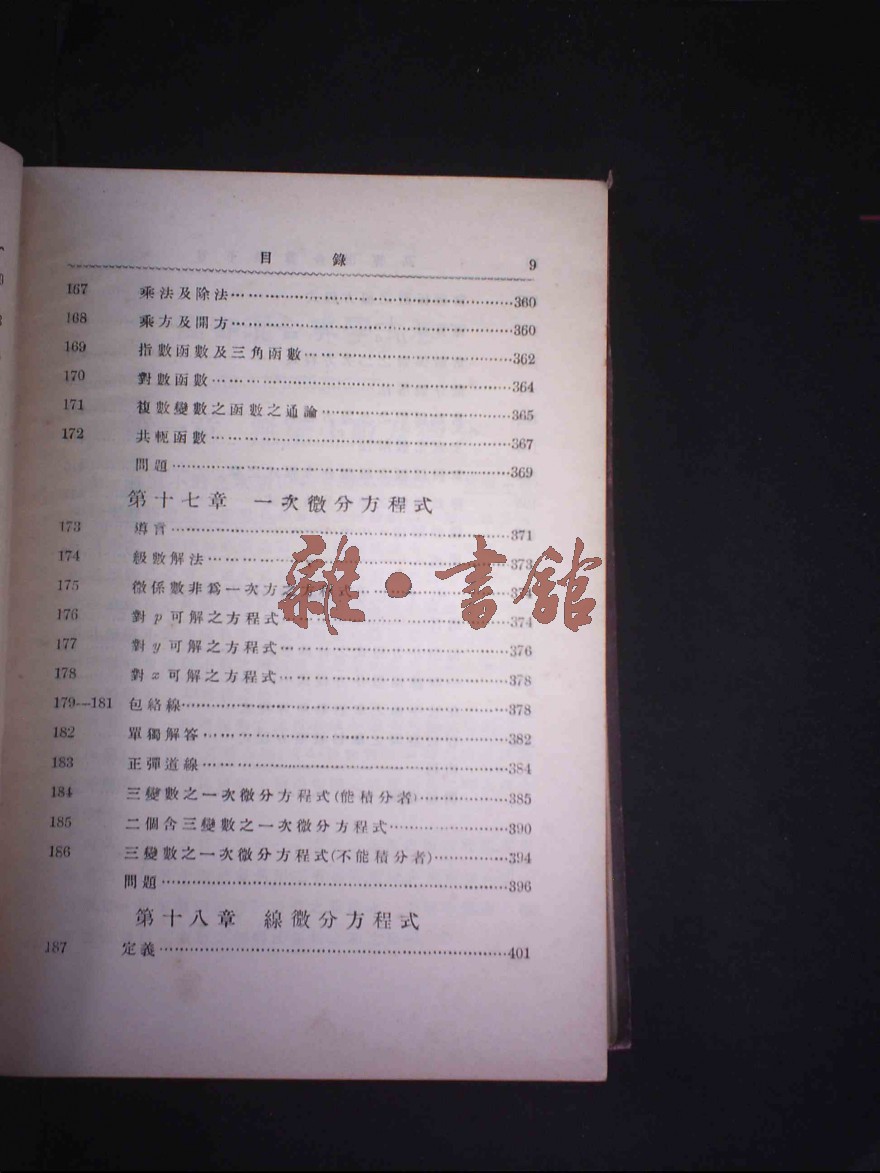 目錄 9
167 乘法及除法 360
168 乘方及開方 360
169 指數函數及三角函數 362
170 對數函數 364
171 複數變數之函數之通論 365
172 共軛函數 367
問題 369
第十七章 一次微分方程式
173 導言 371
174 級數解法 373
175 微係數非爲一次方之方程式
176 對 p 可解之方程式 374
177 對 y 可解之方程式 376
178 對 x 可解之方程式 378
179—181 包絡線 378
182 單獨解答 382
183 正彈道線 384
184 三變數之一次微分方程式(能積分者) 385
185 二個含三變數之一次微分方程式 390
186 三變數之一次微分方程式(不能積分者) 394
問題 396
第十八章 線微分方程式
187 定義 401
雜·書館